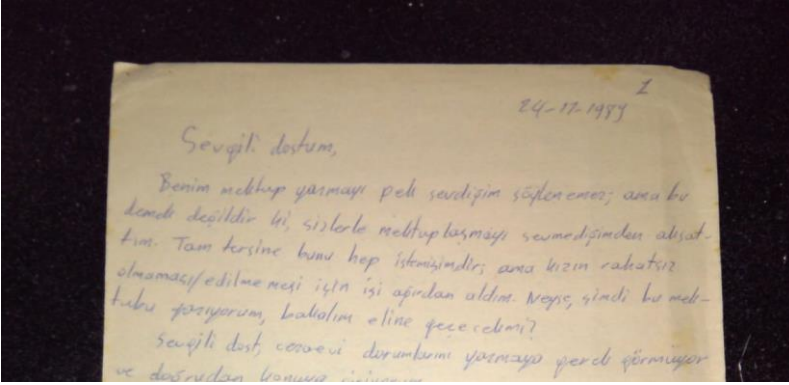 1
24-11-1989
Sevgili dostum,
Benim mektup yazmayı pek sevdiğim söylenemez; ama bu
demek değildir ki, sizlerle mektuplaşmayı sevmediğimden aksat-
tım. Tam tersine bunu hep istemişimdir; ama kızın rahatsız
olmaması/edilmemesi için işi ağırdan aldım. Neyse, şimdi bu mek-
tubu yazıyorum, bakalım eline geçecekmi?
Sevgili dost, cezaevi durumlarını yazmaya gerek görmüyor
ve doğrudan konuya giriyorum.